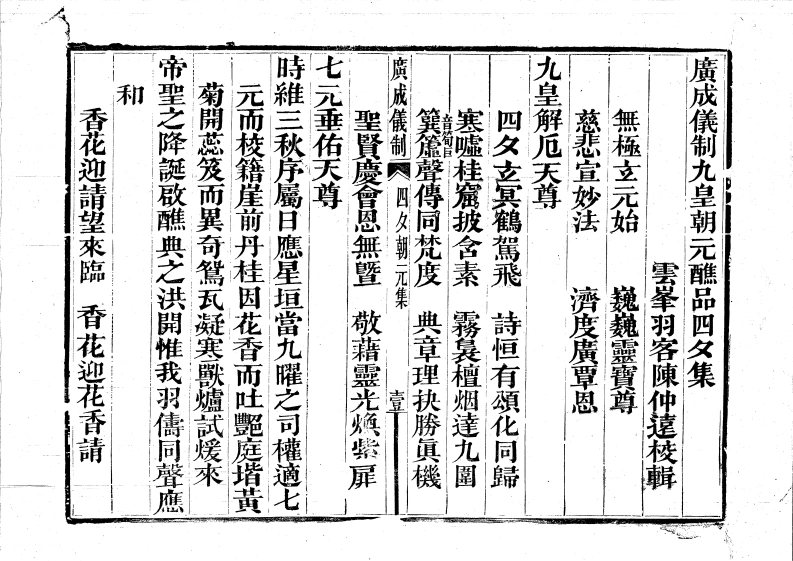 廣成儀制九皇朝元醮品四夕集
雲峯羽客陳仲遠校輯
無極玄元始 巍巍靈寶尊
慈悲宣妙法 濟度廣覃恩
九皇解厄天尊
四夕玄冥鶴駕飛 詩恒有頌化同歸
寒噓桂窟披含素 霧裊檀烟達九圍
音筍巨
簨簴聲傳同梵度 典章理抉勝眞機
廣成儀制 四夕朝元集 壹
聖賢慶會恩無曁 敬藉靈光煥紫扉
七元垂佑天尊
時維三秋序屬日應星垣當九曜之司權適七
元而校籍崖前丹桂因花香而吐艷庭堦黃
菊開蕊笈而異奇鴛瓦凝寒獸爐試煖來
帝聖之降誕啟醮典之洪開惟我羽儔同聲應
和
香花迎請望來臨 香花迎花香請